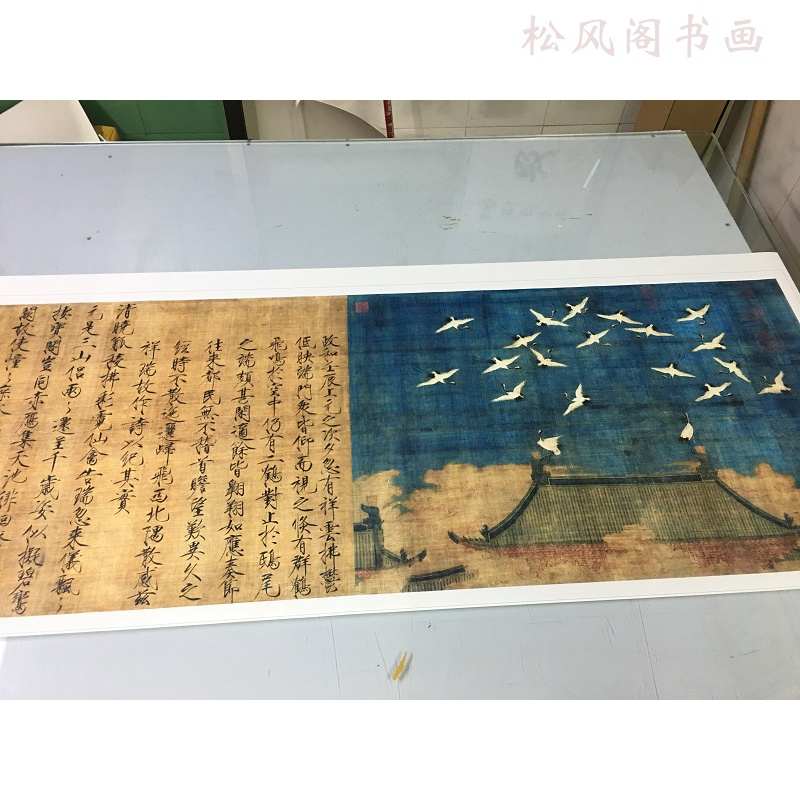 松风阁书画
政和壬辰上元之次夕忽有祥雲拂鬱
低映端門衆皆仰而視之倏有群鶴
飛鳴於空中仍有二鶴對止於鴟尾
之端頗甚閑適餘皆翱翔如應奏節
往來都民無不稽首瞻望歎異久之
經時不散迤邐歸飛西北隅散感茲
祥瑞故作詩以紀其實
清曉觚稜拂彩霓仙禽告瑞忽來儀飄〻
元是三山侶兩〻還呈千歲姿似擬碧鸞
棲寶閣豈同赤鴈集天池徘徊
闕故使憧〻庶